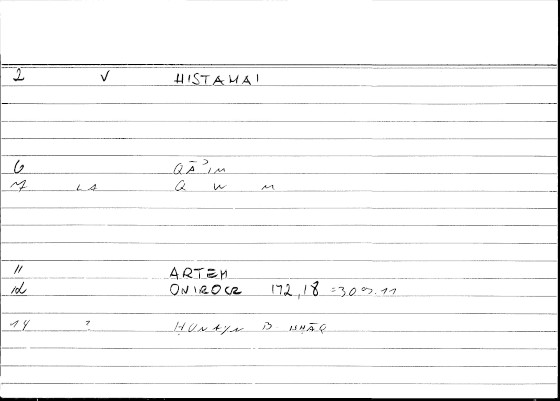 2 V HISTAMAI
6 QĀʾIM
7 LA Q W M
11 ARTEM
12 ONIROCR 172,18 = 309.11
14 ? HUNAYN B. ISHĀQ